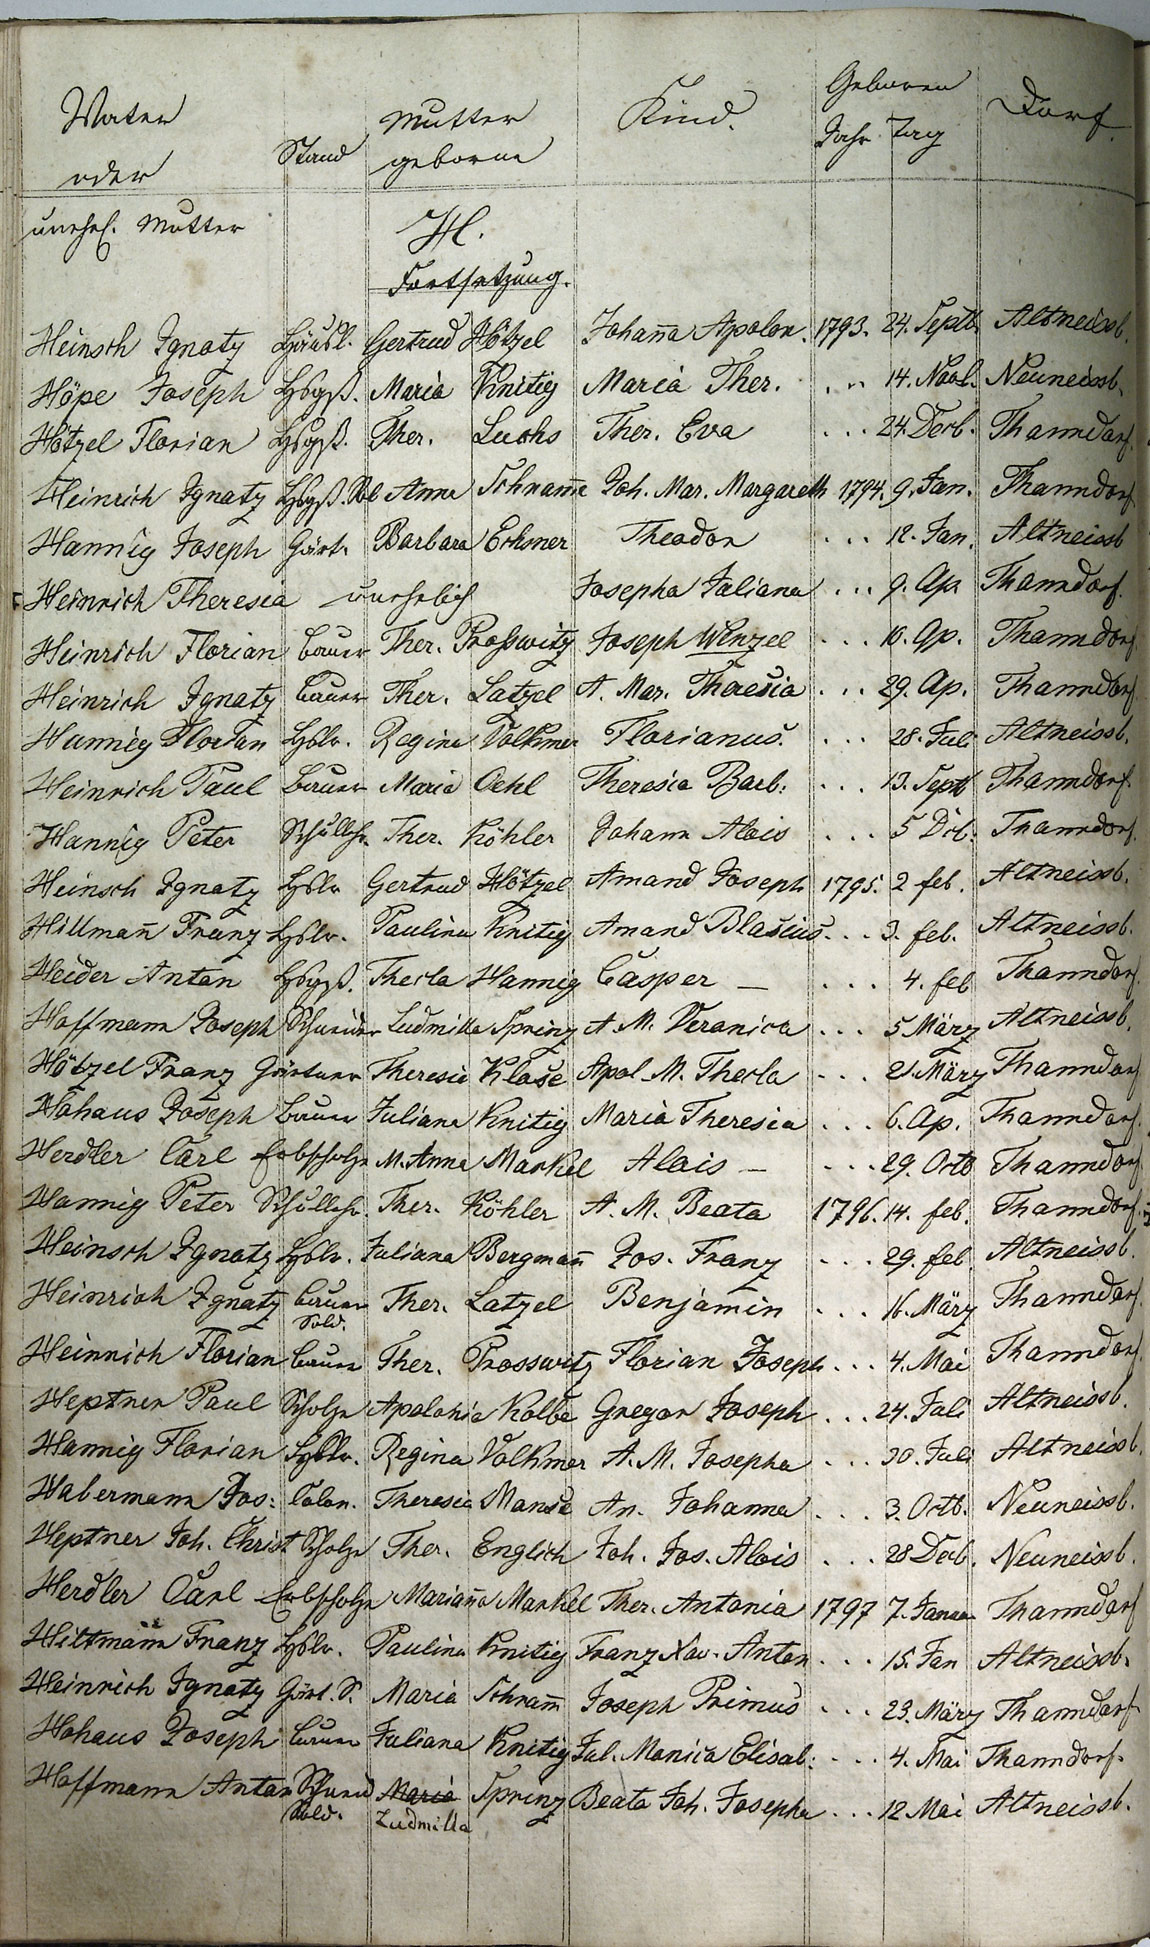 Vater Mutter Kind. Geboren Dorf.
oder Stand geborne Jahr Tag
unehl. Mutter H.
Fortsetzung.
Heinsch Ignatz Häusl. Gertrud Hötzel Johan̄a Apolon. 1793. 24. Septb Altneissb.
Höpe Joseph Hsgß. Maria Knitig Maria Ther. . . . 14. Novb. Neuneissb.
Hötzel Florian Hsgß. Ther. Luchs Ther. Eva . . . 24 Decb. Thanndorf.
Heinrich Ignatz Hsgß. Sol Anna Schram̄e Joh. Mar. Margareth 1794. 9. Jan. Thanndorf
Hannig Joseph Gärt. Barbara Exhner Theodor . . . 12. Jan. Altneissb
Heinrich Theresia unehelich Josepha Juliana . . . 9. Ap. Thanndorf.
Heinrich Florian Bauer Ther. Proßwitz Joseph Wenzel . . . 10. Ap. Thanndorf.
Heinrich Ignatz Bauer Ther. Latzel A. Mar. Theresia . . . 29. Ap. Thanndorf.
Hannig Florian Hslr. Regina Volkmer Florianus. . . . 28. Juli Altneissb.
Heinrich Paul Bauer Maria Oehl Theresia Barb: . . . 13. Septb Thanndorf.
Hannig Peter Schullehr. Ther. Köhler Johann Alois . . . 5 Dcb. Thanndorf.
Heinsch Ignatz Hslr Gertrud Hötzel Amand Joseph 1795. 2 feb. Altneissb.
Hillman̄ Franz Hslr. Paulina Knitig Amand Blasius . . . 3. feb. Altneissb.
Heider Anton Hsgß. Thecla Hannig Casper — . . . 4. feb Thanndorf.
Hoffmann Joseph Schneider Ludmilla Sprinz A. M. Veronica . . . 5 März Altneissb.
Hötzel Franz Gärtner Theresia Klose Apol. M. Thecla . . . 21. März Thanndorf
Hohaus Joseph Bauer Juliana Knitig Maria Theresia . . . 6. Ap. Thanndorf.
Herdler Carl Erbscholze M. Anna Markel Alois — . . . 29. Octb Thanndorf
Hannig Peter Schullehr. Ther. Köhler A. M. Beata 1796. 14. feb. Thanndorf.
Heinsch Ignatz Hslr. Juliana Bergman̄ Jos. Franz . . . 29. feb. Altneissb.
Heinrich Ignatz Bauer Ther. Latzel Benjamin . . . 16. März Thanndorf.
Sold.
Heinrich Florian Bauer Ther. Prosswitz Florian Joseph . . . 4. Mai Thanndorf.
Heptner Paul Scholze Apolonia Kolbe Gregor Joseph . . . 24. Juli Altneissb.
Hannig Florian Hslr. Regina Volkmer A. M. Josepha . . . 30. Juli Altneissb.
Habermann Jos: Colon. Theresia Manse An. Johanna . . . 3. Octb. Neuneissb.
Heptner Joh. Christ Scholze Ther. Englich Joh. Jos. Alois . . . 28 Decb. Neuneissb.
Herdler Carl Erbscholze Marian̄a Markel Ther. Antonia 1797 7. Januar Thanndorf
Hillmann Franz Hslr. Paulina Knitig Franz Xav. Anton . . . 15. Jan Altneissb.
Heinrich Ignatz Gärt. S. Maria Schram̄ Joseph Primus . . . 23. März Thanndorf
Hohaus Joseph Bauer Juliana Knitig Jul. Monica Elisab: . . . 4. Mai Thanndorf.
Hoffmann Anton Schneid Maria Sprinz Beata Joh. Josepha . . . 12 Mai Altneissb.
Sold. Ludmilla